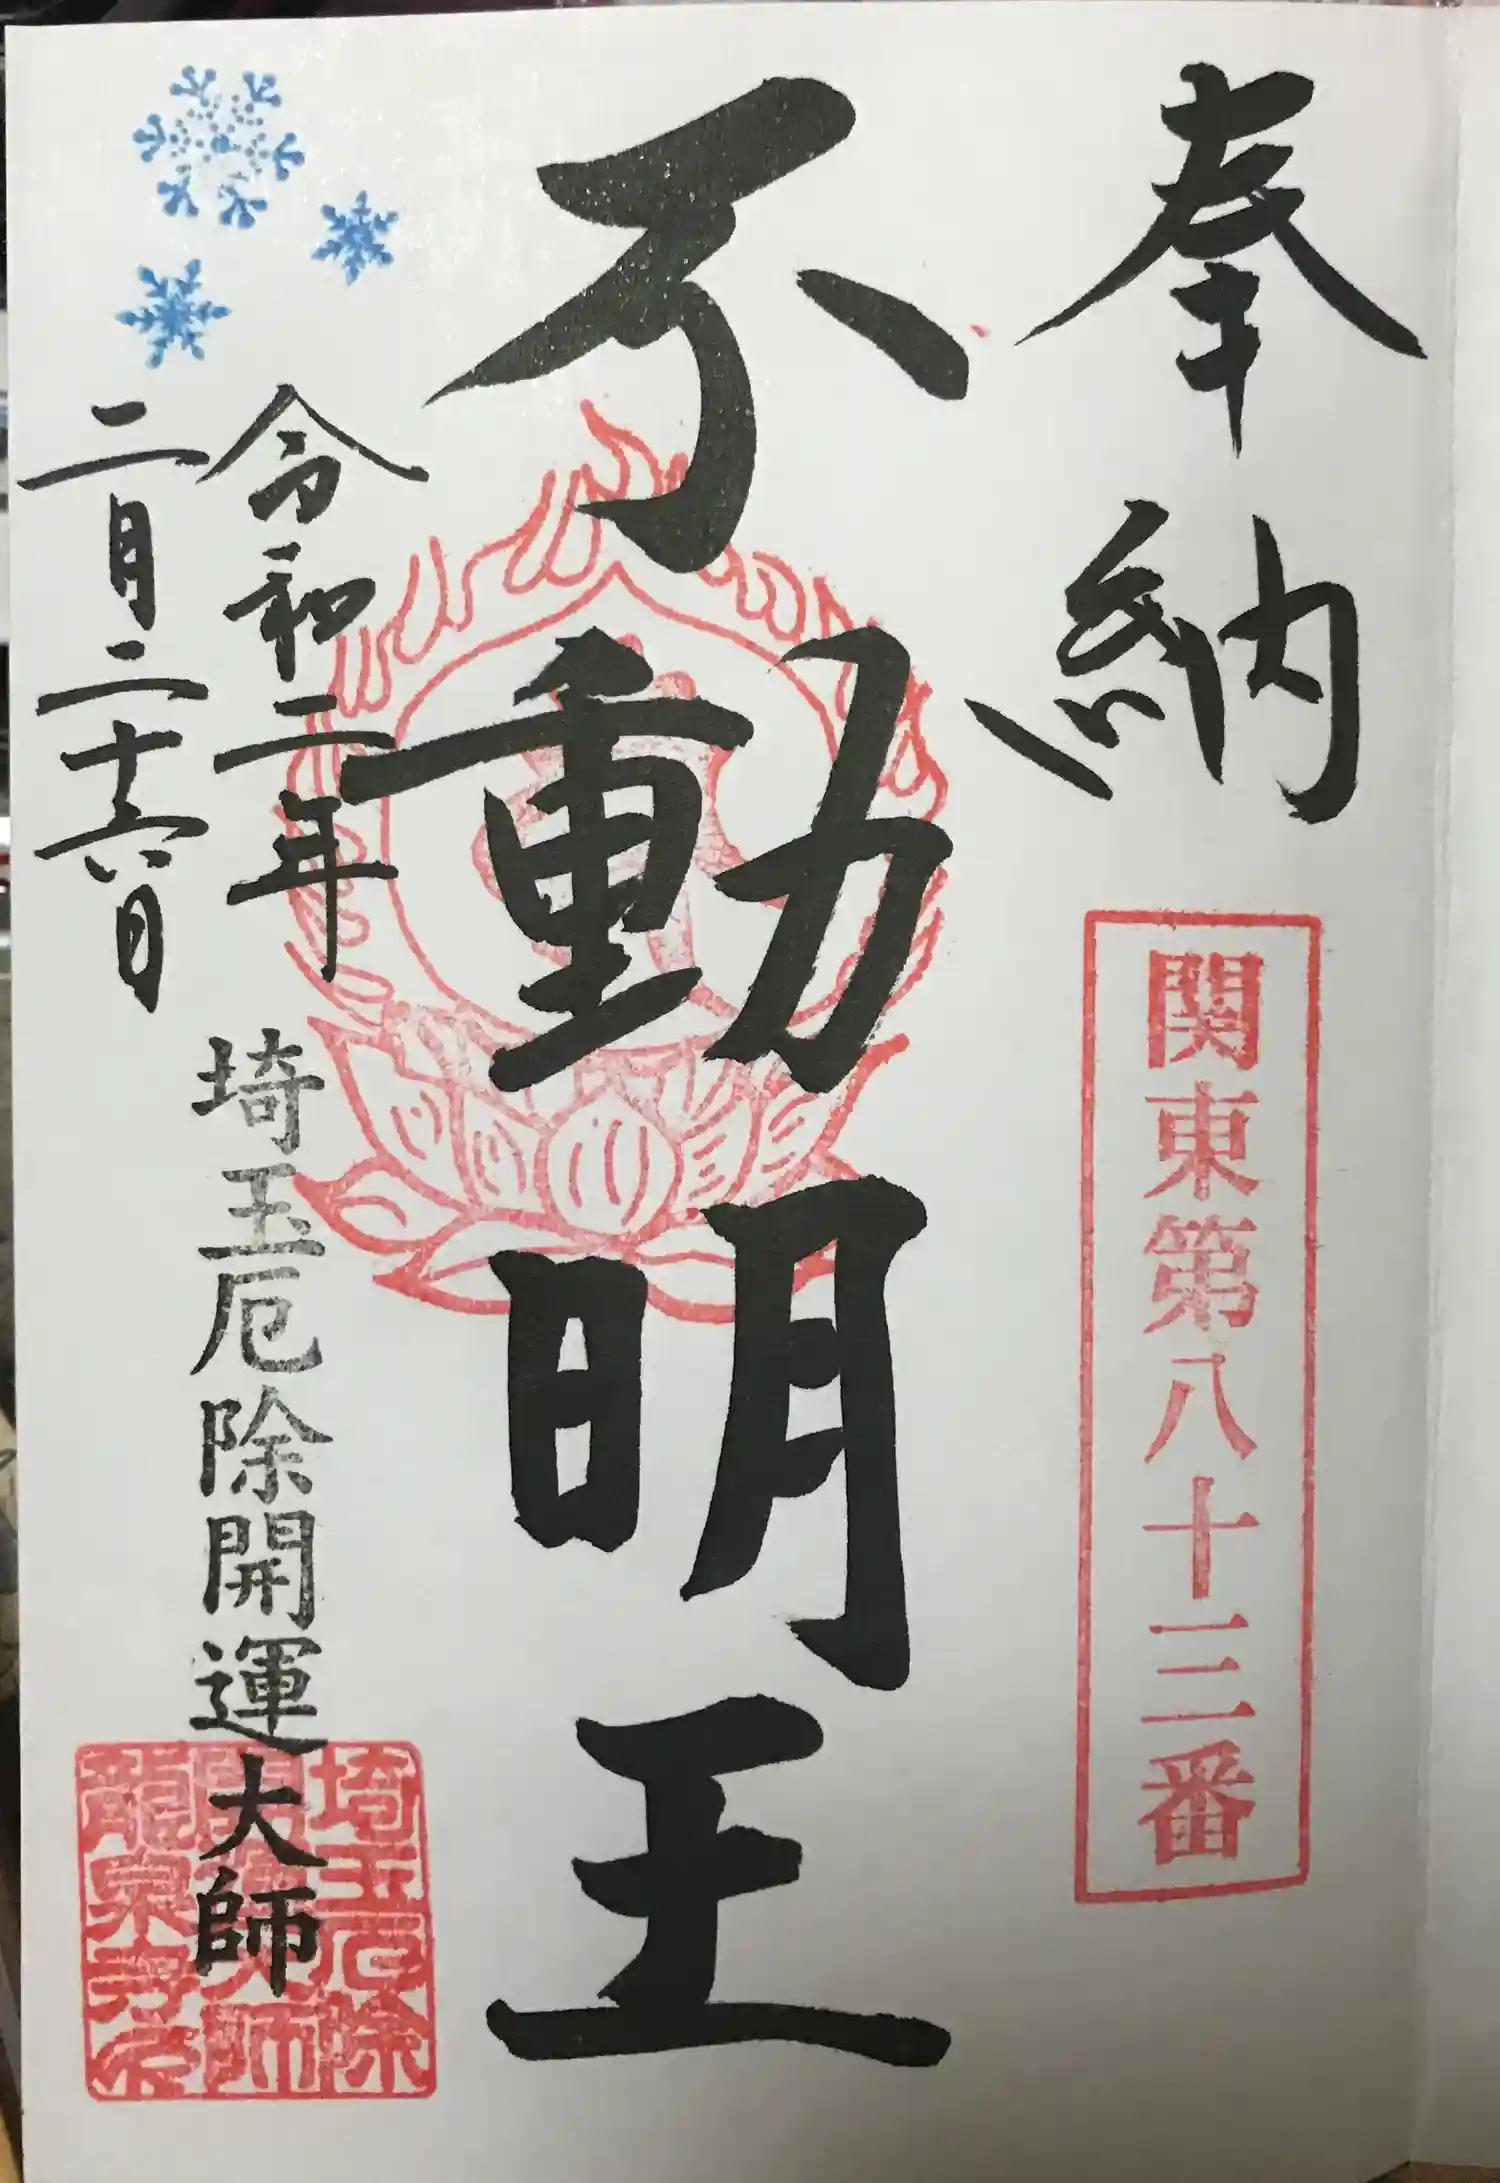 奉納
関東第八十三番
不動明王
令和二年
二月二十六日
埼玉厄除開運大師
埼玉厄除
開運大師
龍泉寺印